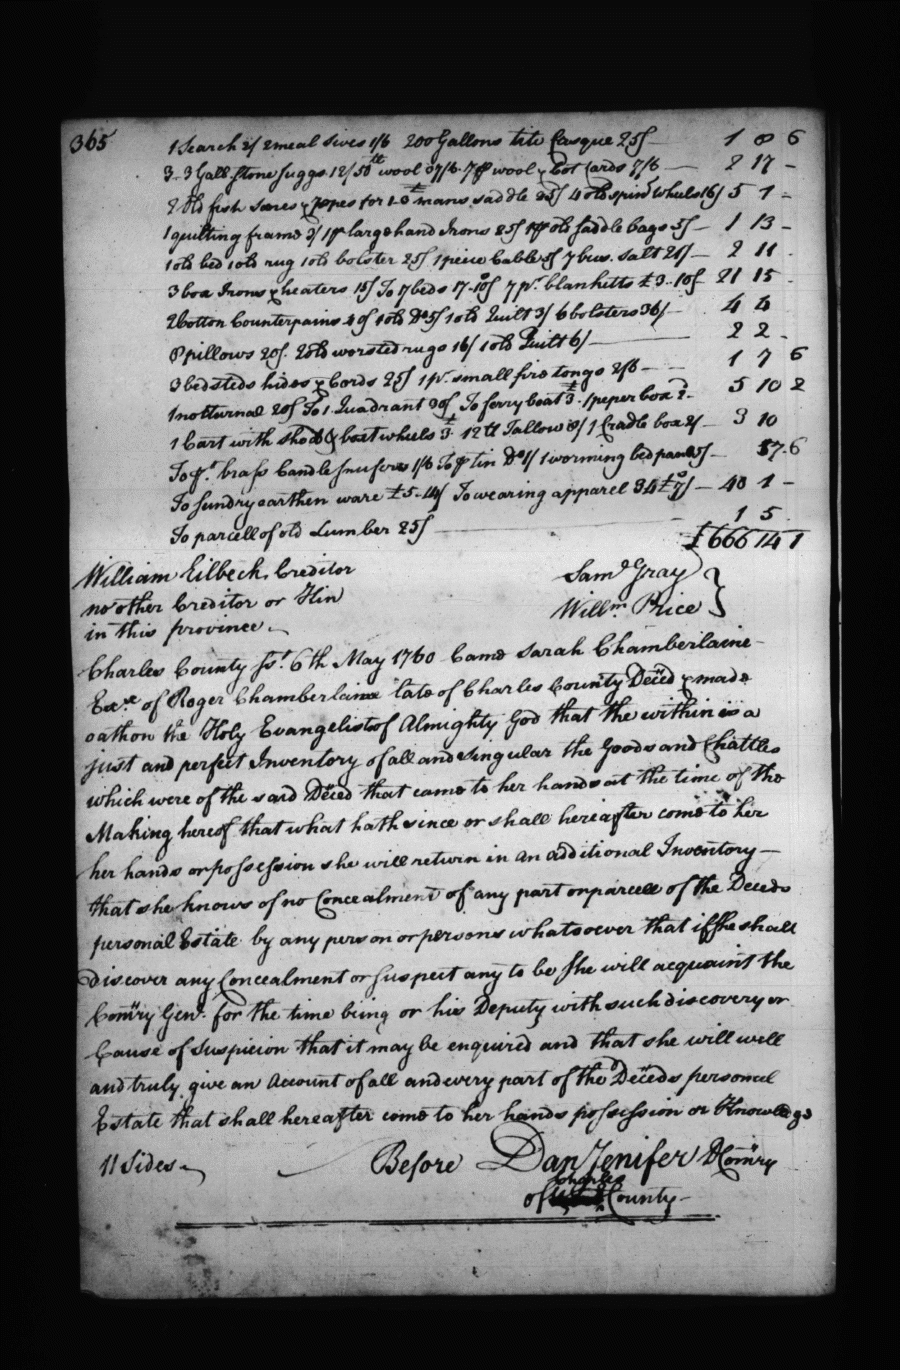 365
1 Search 2/ 2 meal Sives 1/6 200 Gallons tite Casque 25/ — 1 8 6
3-3 Gall. Stone Juggs 12/ 50 lb wool 37/6. 7 pr wool & Cot Cards 7/6 — 2 17 -
2 Old fish & ropes for Do mans saddle 25/ 4 old spin wheels 16/ 5 1 -
1 quilting frame 2/ 1 pr large hand Irons 25/ 1 pr old saddle bags 5/ — 1 13 -
1 old bed 1 old rug 1 old bolster 25/ 1 peice Cable 5/ 7 bus. Salt 21/ — 2 11
3 box Irons & heaters 15/ To 7 beds 17.10/ 7 pr. blanketts £3..10/ — 21 15
2 Cotton Counterpains 40/ 1 old Do 5/ 1 old Quilt 3/ 6 bolsters 36/ — 4 4
8 pillows 20/. 2 old worsted rugs 16/ 1 old Quilt 6/ — 2 2 -
3 bedsteds hides & Cords 25/ 1 pr. small fire tongs 2/6 — 1 7 6
1 nocturnal 20/ To 1 Quadrant 30/ To ferry boat £3. 1 peper box 2d. 5 10 2
1 Cart with shod & boat wheels £3. 12 lb Tallow 8/ 1 Cradle box 2/ — 3 10
To pr. brass Candle snufers 1/6 To pr tin Do 1/ 1 worming bed pan 5/ — 7. 6
To sundry earthen ware £5.14/ To wearing apparel 34£ 7/ — 40 1 -
To parcell of old Lumber 25/ — 1 5
£666 14 1
William Eilbeck, Creditor
no other Creditor or Kin
in this province.
Saml Gray
Willm. Price
Charles County Ss. 6th May 1760 Came Sarah Chamberlaine
Exx. of Roger Chamberlaine late of Charles County Deced & made
oath on the Holy Evangelists of Almighty God that the within is a
just and perfect Inventory of all and singular the Goods and Chattles
which were of the said Deced that came to her hands at the time of the
Making hereof that what hath since or shall hereafter come to her
her hands or possession she will return in an additional Inventory —
that she knows of no Concealment of any part or parcel of the Deceds
personal Estate by any person or persons whatsoever that if she shall
discover any Concealment or suspect any to be She will acquaint the
Comry Genl. for the time being or his Deputy with such discovery or
Cause of Suspicion that it may be enquired and that she will well
and truly give an Account of all and every part of the Deceds personal
Estate that shall hereafter come to her hands possession or Knowledge
11 Sides
Before Dan Jenifer DComry
of Charles County